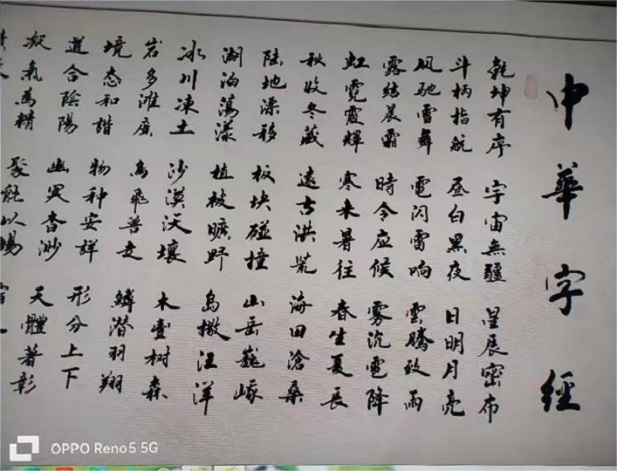 中華字經
乾坤有序 宇宙無疆 星辰密布
斗柄指航 昼白黑夜 日明月亮
风馳雪舞 電闪雷响 雲騰致雨
露結晨霜 時令应候 雾沉雹降
虹霓霞輝 寒来暑往 春生夏長
秋收冬藏 遠古洪荒 海田滄桑
陸地漂移 板块碰撞 山岳巍峨
湖泊蕩漾 植被曠野 島撒汪洋
冰川凍土 沙漠沃壤 木豊树森
岩多滩廣 鸟飛兽走 鳞潜羽翔
境态和諧 物种安詳 形分上下
道合陰陽 幽冥杳渺 天體著彰
凝氣為精 聚能以場
OPPO Reno5 5G